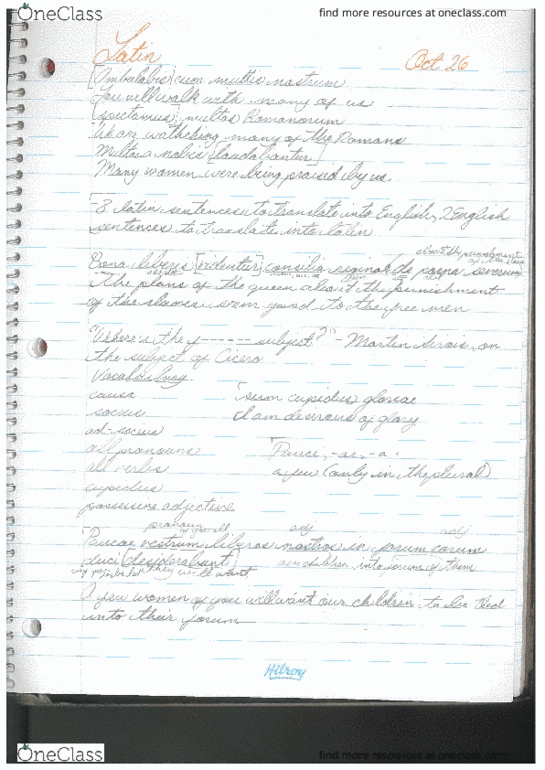 OneClass
find more resources at oneclass.com
Latin
Oct 26
[Ambulabis] cum multis nostrum
You will walk with many of us
[spectamus] multos Romanorum
We are watching many of the Romans
Multae a nobis [laudabantur]
Many women were being praised by us
-8 latin sentences to translate into English, 2 English
sentences to translate into latin
about the punishment
of the slaves
Bona liberis [videntur] consilia reginae de poena servorum
The plans of the queen about the punishment
of the slaves seem good to the free men
"Where's the f------ subject?" - Martin Sirois, on
the subject of Cicero
Vocabulary
causa
sum cupidus gloriae
socius
I am desirous of glory
ad-socius
all pronouns
Pauci, -ae, -a:
all verbs
a few (only in the plural)
cupidus
possessive adjective
pronoun
of you all
adj
adj
Paucae vestrum liberos nostros in forum eorum
duci [desiderabunt]
they will want
our children into forum of them
A few women of you will want our children to be led
into their forum
Hilroy
OneClass
find more resources at oneclass.com